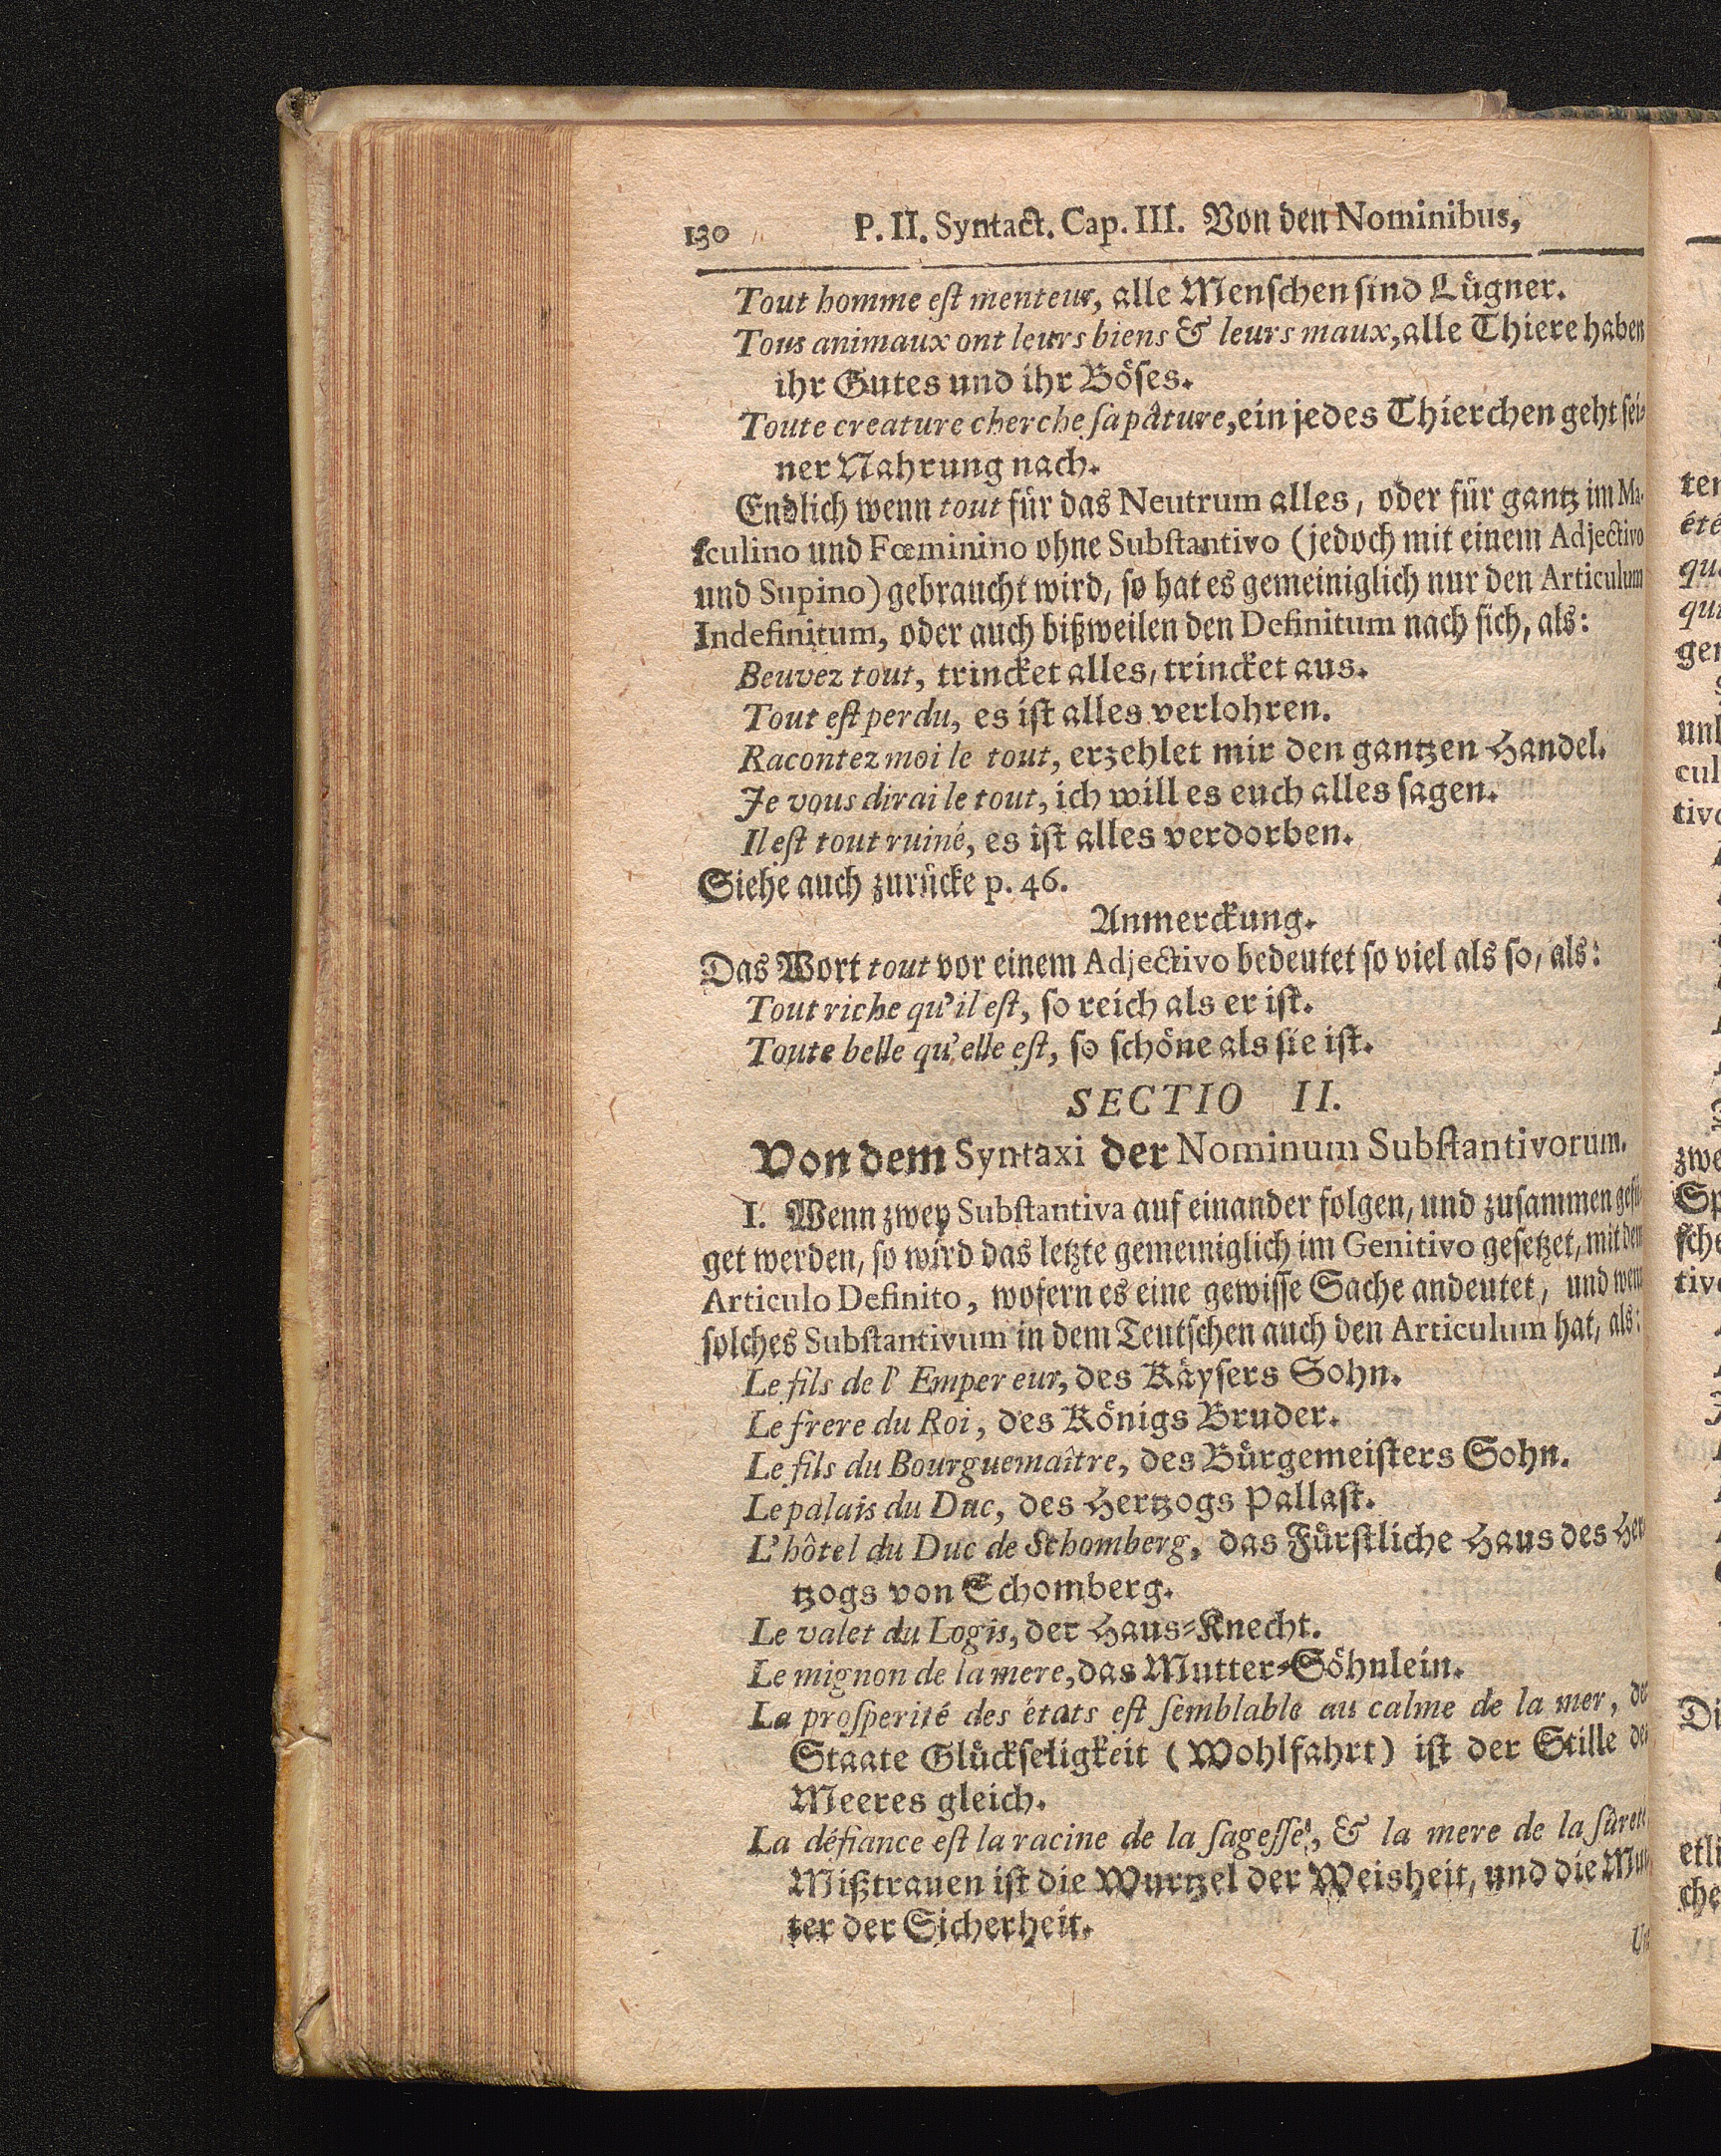 130 P. II. Syntact. Cap. III. Von den Nominibus,
Tout homme eſt menteur, alle Menſchen ſind Lügner.
Tous animaux ont leurs biens & leurs maux, alle Thiere haben
ihr Gutes und ihr Böſes.
Toute creature cherche ſa pâture, ein jedes Thierchen geht ſei-
ner Nahrung nach.
Endlich wenn tout für das Neutrum alles, oder für gantz im Ma-
ſculino und Fœminino ohne Subſtantivo (jedoch mit einem Adjectivo
und Supino) gebraucht wird, ſo hat es gemeiniglich nur den Articulum
Indefinitum, oder auch bißweilen den Definitum nach ſich, als:
Beuvez tout, trincket alles, trincket aus.
Tout eſt perdu, es iſt alles verlohren.
Racontez moi le tout, erzehlet mir den gantzen Handel.
Je vous dirai le tout, ich will es euch alles ſagen.
Il eſt tout ruiné, es iſt alles verdorben.
Siehe auch zurücke p. 46.
Anmerckung.
Das Wort tout vor einem Adjectivo bedeutet ſo viel als ſo, als:
Tout riche qu'il eſt, ſo reich als er iſt.
Toute belle qu'elle eſt, ſo ſchöne als ſie iſt.
SECTIO II.
Von dem Syntaxi der Nominum Subſtantivorum.
I. Wenn zwey Subſtantiva auf einander folgen, und zuſammen gefü-
get werden, ſo wird das letzte gemeiniglich im Genitivo geſetzet, mit dem
Articulo Definito, wofern es eine gewiſſe Sache andeutet, und wenn
ſolches Subſtantivum in dem Teutſchen auch den Articulum hat, als:
Le fils de l' Emper eur, des Käyſers Sohn.
Le frere du Roi, des Königs Bruder.
Le fils du Bourguemaître, des Bürgemeiſters Sohn.
Le palais du Duc, des Hertzogs Pallaſt.
L'hôtel du Duc de Schomberg, das Fürſtliche Haus des Her
tzogs von Schomberg.
Le valet du Logis, der Haus-Knecht.
Le mignon de la mere, das Mutter-Söhnlein.
La proſperité des états eſt ſemblable au calme de la mer, de
Staate Glückſeligkeit (Wohlfahrt) iſt der Stille de
Meeres gleich.
La défiance eſt la racine de la ſageſſe, & la mere de la ſûreté
Mißtrauen iſt die Wurtzel der Weisheit, und die Mut
ter der Sicherheit.
ter
été
que
qui
ger
unl
cul
tivo
zwe
Sp
ſche
tivo
Di
etli
che